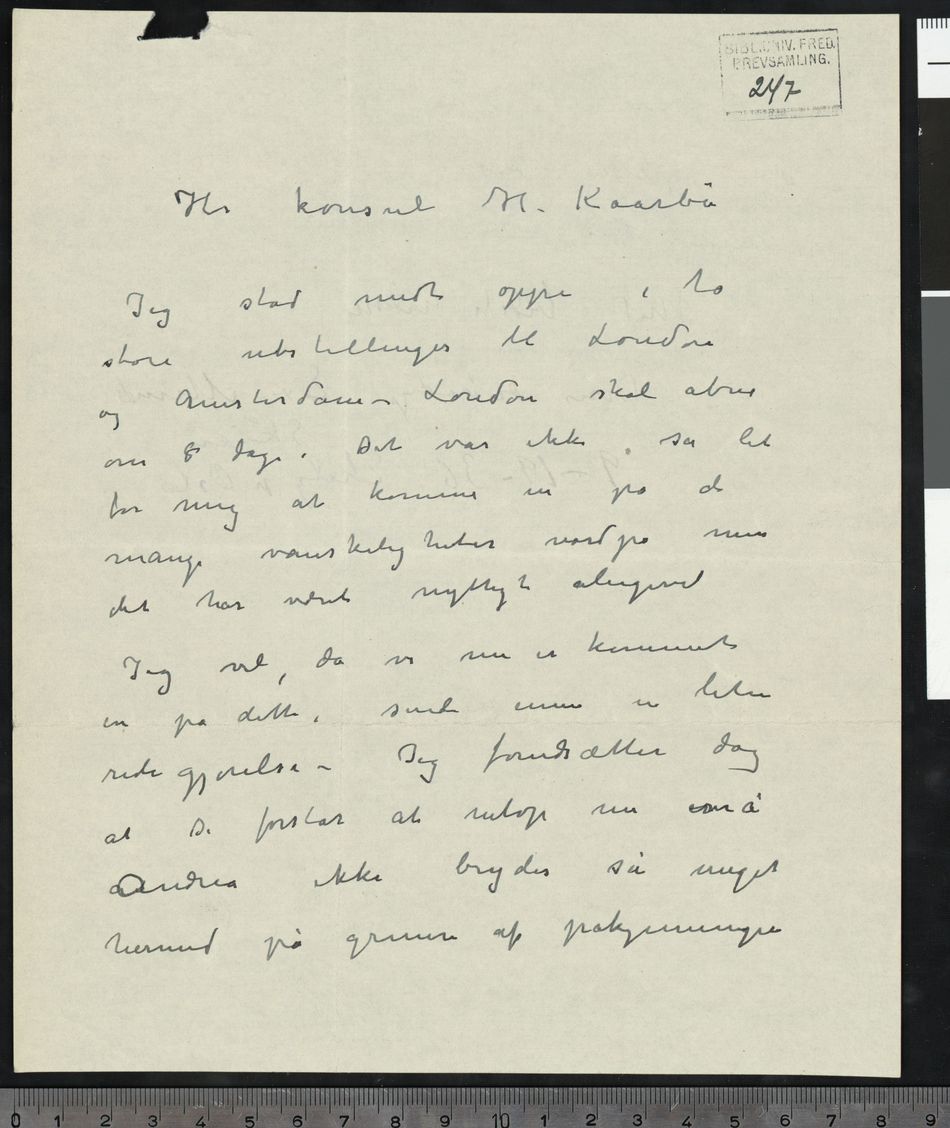 BIBL. UNIV. FRED.
BREVSAMLING.
247
Hr konsul H. Kaarbö
Jeg stod midt oppe i to
store utstillinger til London
og Amsterdam – London skal abne
om 8 dage. Det var ikke sa let
for mig at komme in på de
mange vanskeligheter nordpo men
det har været nyttigt alligevel
Jeg vil, da vi nu er kommet
in på dette, sende emm en liten
rede gjørelse – Jeg forudsætter dog
at De forstår at netop nu må
Andrea ikke brydes så meget
hermed på grunn af påkjenningen
0 1 2 3 4 5 6 7 8 9 10 1 2 3 4 5 6 7 8 9